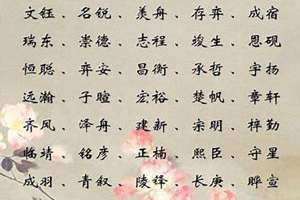 文钰、名锐、羡舟、存弈、成宿
瑞东、崇德、志程、竣生、思砚
恒聪、弈安、昌衡、承哲、宇扬
远瀚、子暄、宏裕、楚帆、章轩
齐风、泽舟、建新、宗明、梓勤
临靖、铭彦、正楠、熙臣、守星
成羽、青叙、陵铎、长庚、晔宣